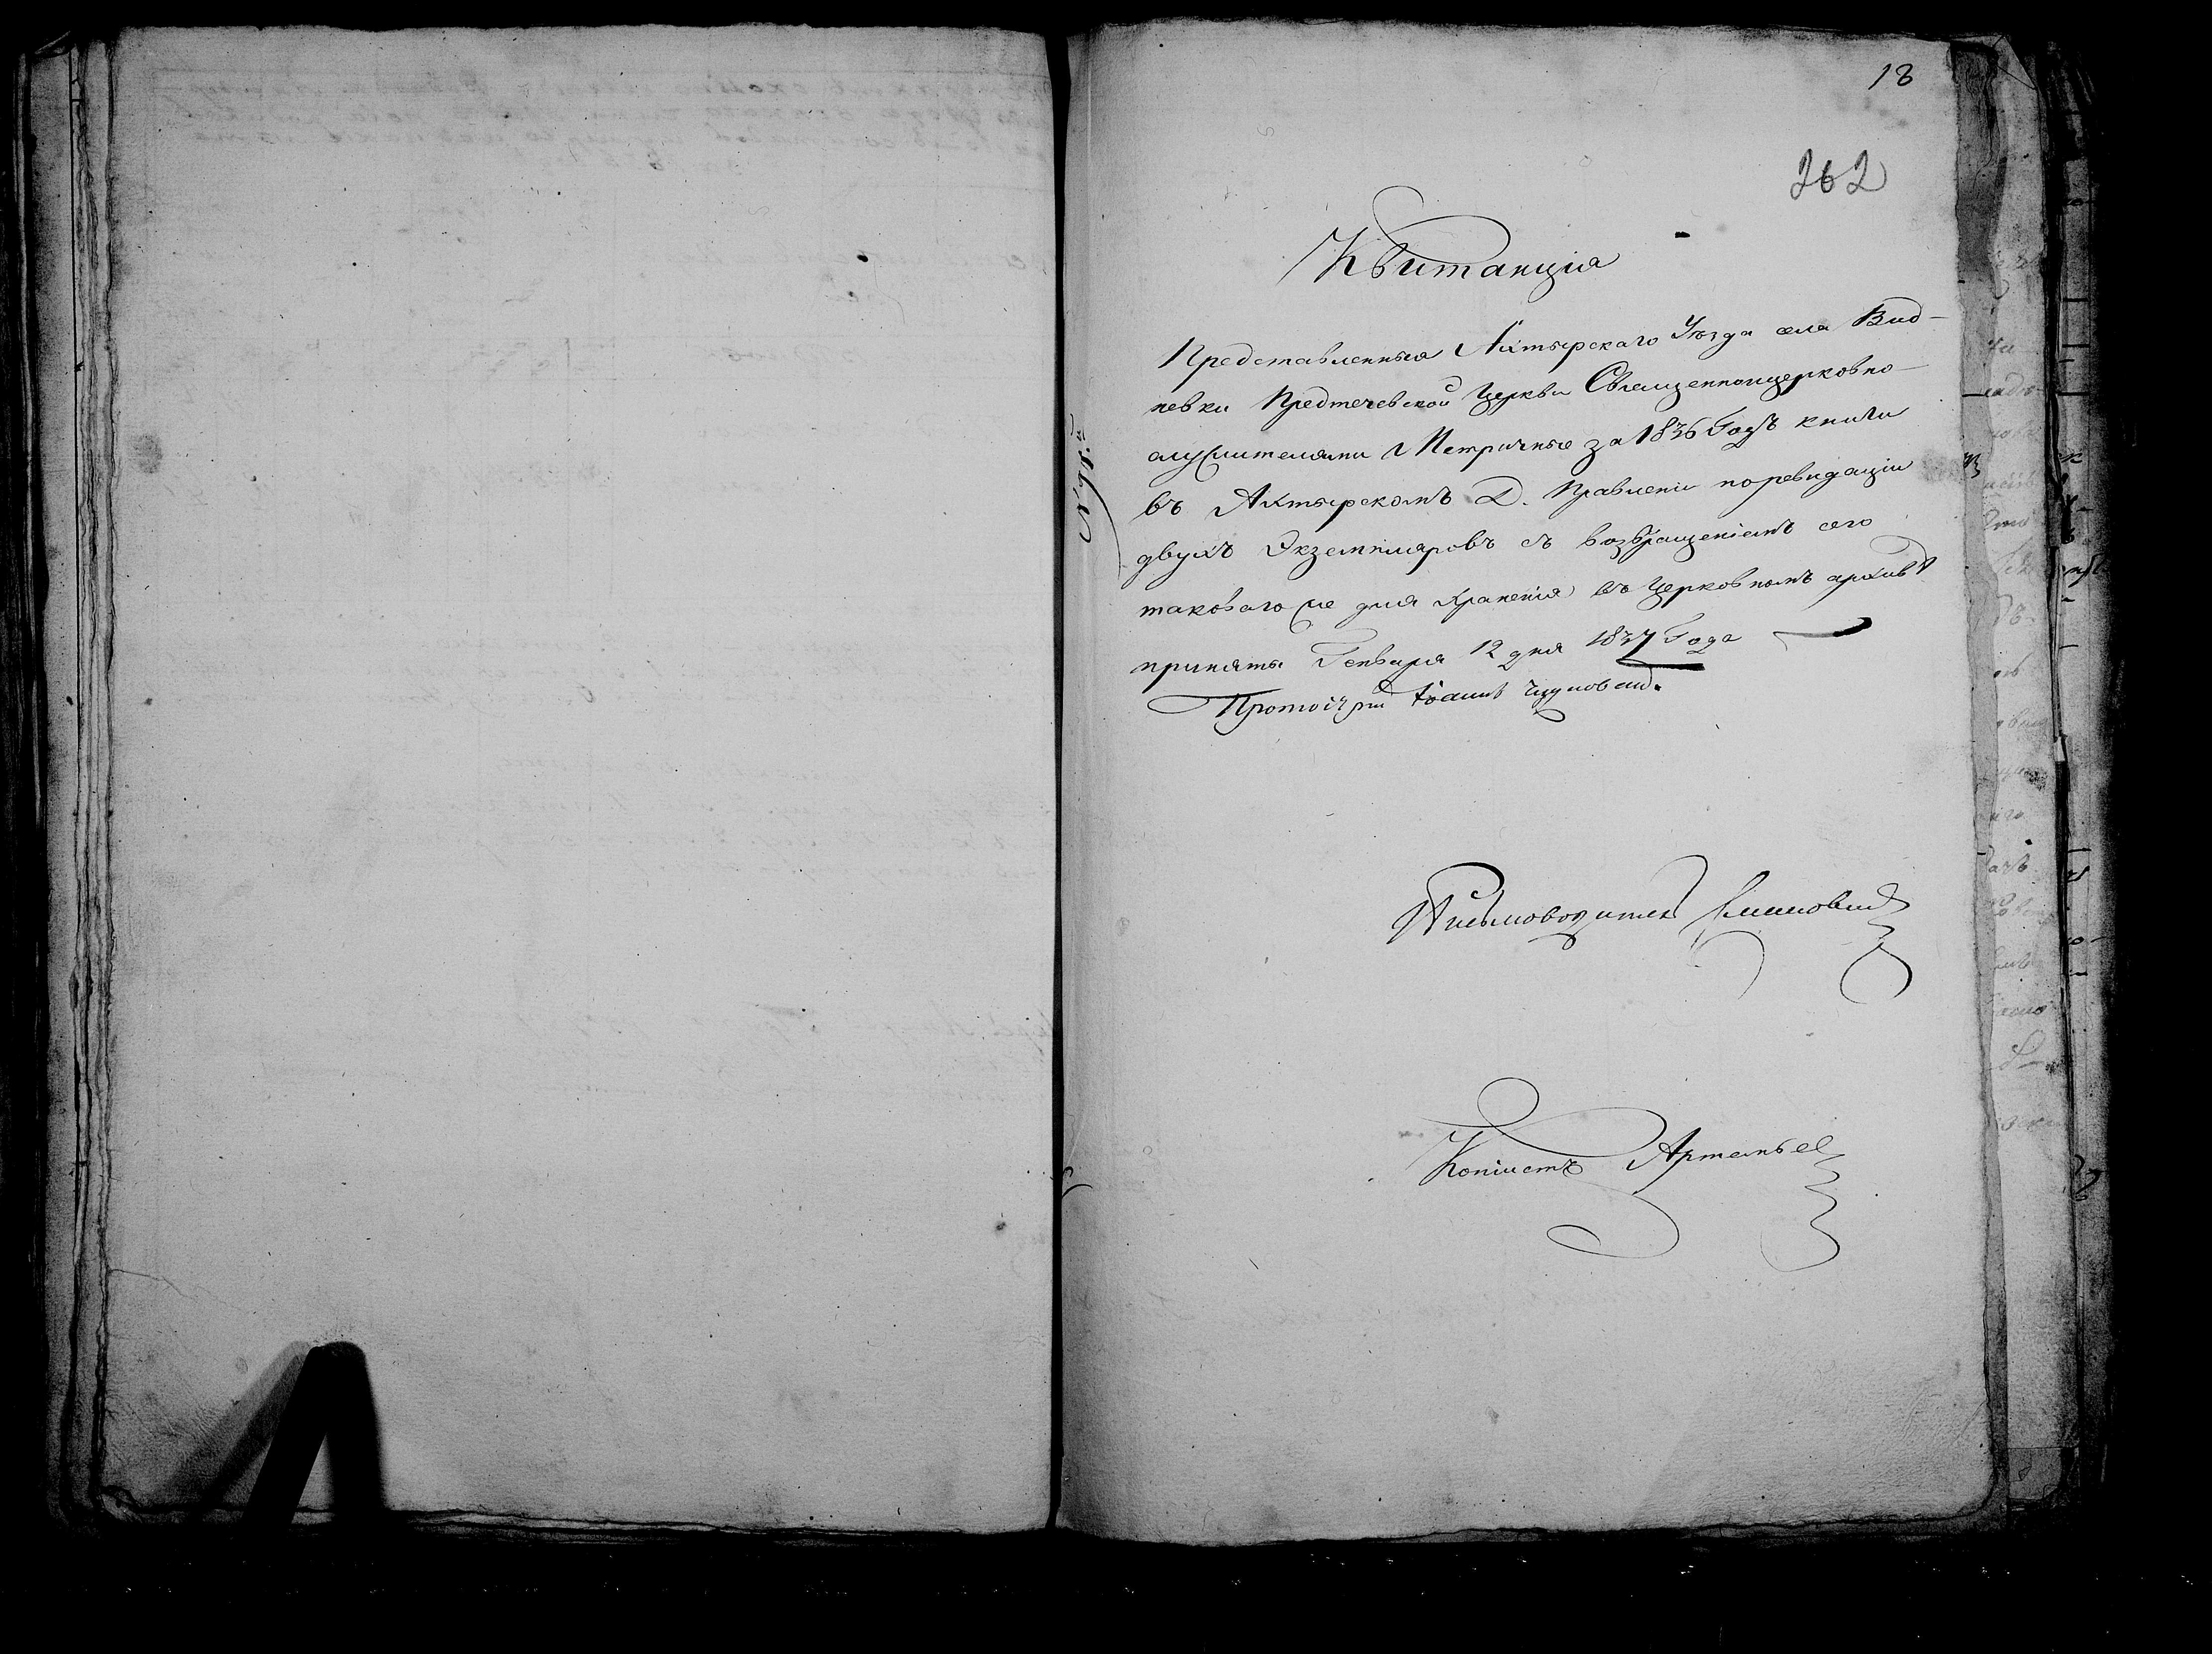 18
262
Квитанція
Представленныя Ахтырскаго Уѣзда села Вид-
невки Предтечевской Церкви Священноицерковно-
служителями Метричные за 1836 Годъ книги
въ Ахтырскомъ Д. Правленіи поревидаціи
двухъ Экземпляровъ съ возвращеніемъ сего
таковаго же для храненія въ Церковномъ архивѣ
приняты Генваря 12 дня 1837 Года
Протоіерей Іоаннъ
Письмоводитель
Копіистъ Артемьев